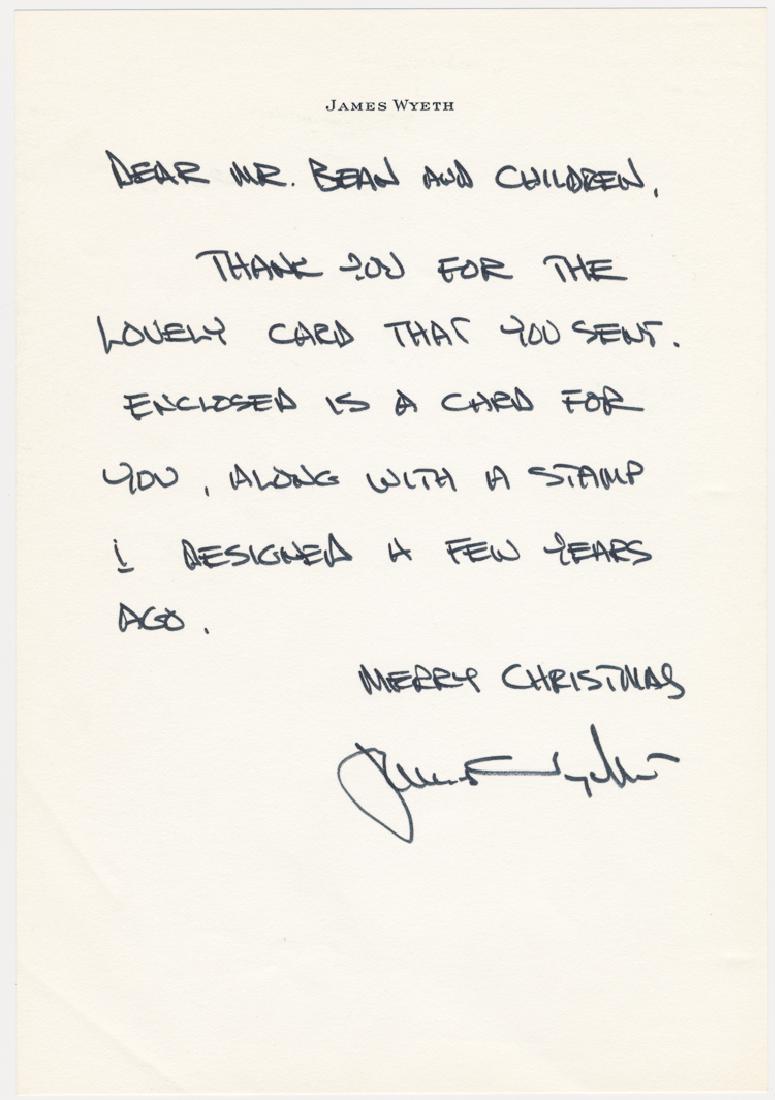 JAMES WYETH
DEAR MR. BEAN AND CHILDREN,
THANK YOU FOR THE
LOVELY CARD THAT YOU SENT.
ENCLOSED IS A CARD FOR
YOU, ALONG WITH A STAMP
I DESIGNED A FEW YEARS
AGO.
MERRY CHRISTMAS
James Wyeth